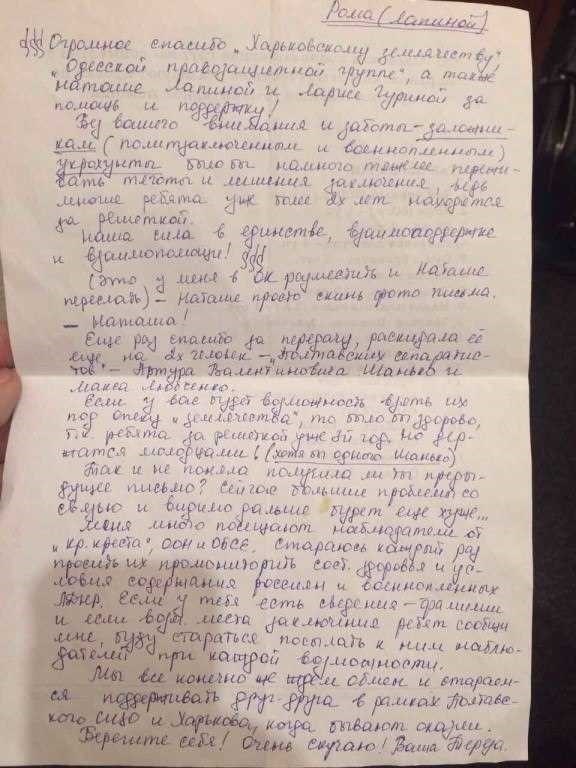 Рома (Лапиной)
§§§ Огромное спасибо „Харьковскому землячеству"
„Одесской правозащитной группе", а также
Наташе Лапиной и Ларисе Гуриной за
помощь и поддержку!
Без вашего внимания и заботы – заложни-
кам (политзаключенным и военнопленным)
укрохунты было бы намного тяжелее пережи-
вать тяготы и лишения заключения, ведь
многие ребята уже более 2х лет находятся
за решеткой.
Наша сила в единстве, взаимоподдержке
и взаимопомощи! §§§
(Это у меня в ОК разместить и Наташе
переслать) – Наташе просто скинь фото письма.
– Наташа!
Еще раз спасибо за передачу, раскидала её
еще на 2х человек – „Полтавских сепаратис-
тов" – Артура Валентиновича Шанько и
Макса
Если у вас будет возможность взять их
под опеку „землячества", то было бы здорово,
т.к. ребята за решеткой уже год. Но дер-
жатся молодцами! (хотя бы одного Шанько)
Так и не поняла получила ли ты преды-
дущее письмо? Сейчас большие проблемы со
связью и видимо дальше будет еще хуже...
Меня много посещают наблюдатели от
„Кр. креста", ООН и ОБСЕ. Стараюсь каждый раз
просить их промониторить сост. здоровья и ус-
ловия содержания россиян и военнопленных
ЛДНР. Если у тебя есть сведения – фамилии
и если возм. места заключения ребят сообщи
мне, буду стараться посылать к ним наблю-
дателей при каждой возможности.
Мы все конечно же ждем обмен и стараем-
ся поддерживать друг-друга в рамках Полтавс-
кого СИЗО и Харькова, когда бывают оказии.
Берегите себя! Очень скучаю! Ваша Терда.